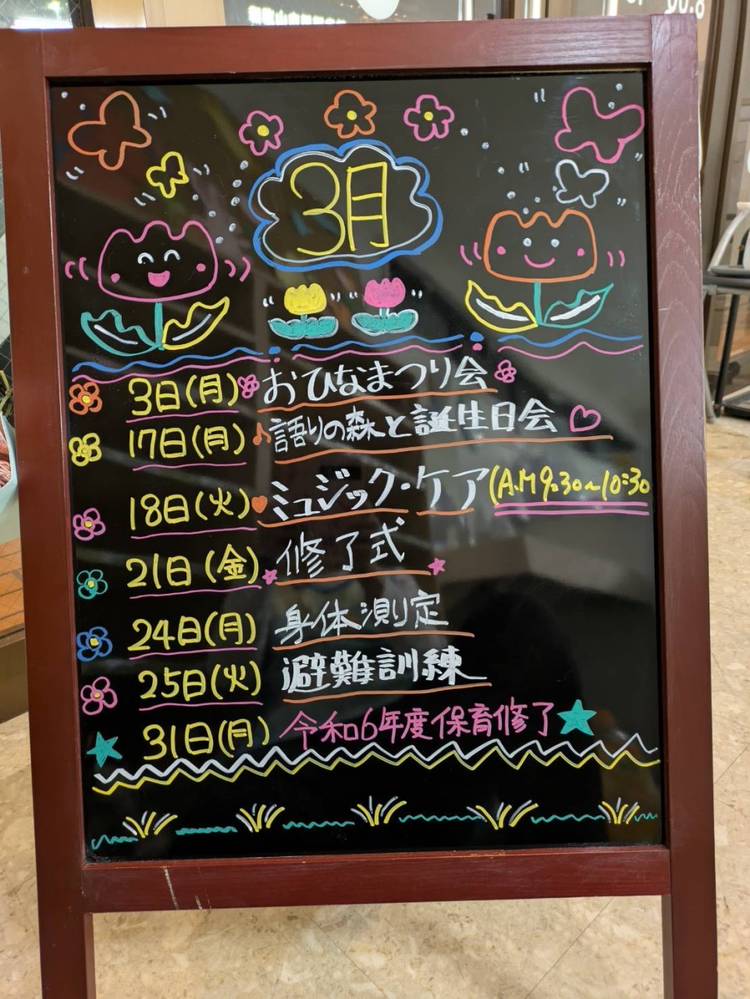 3月
3日(月) おひなまつり会
17日(月) 語りの森と誕生日会
18日(火) ミュジック・ケア(A.M9:30~10:30
21日(金) 修了式
24日(月) 身体測定
25日(火) 避難訓練
31日(月) 令和6年度保育修了